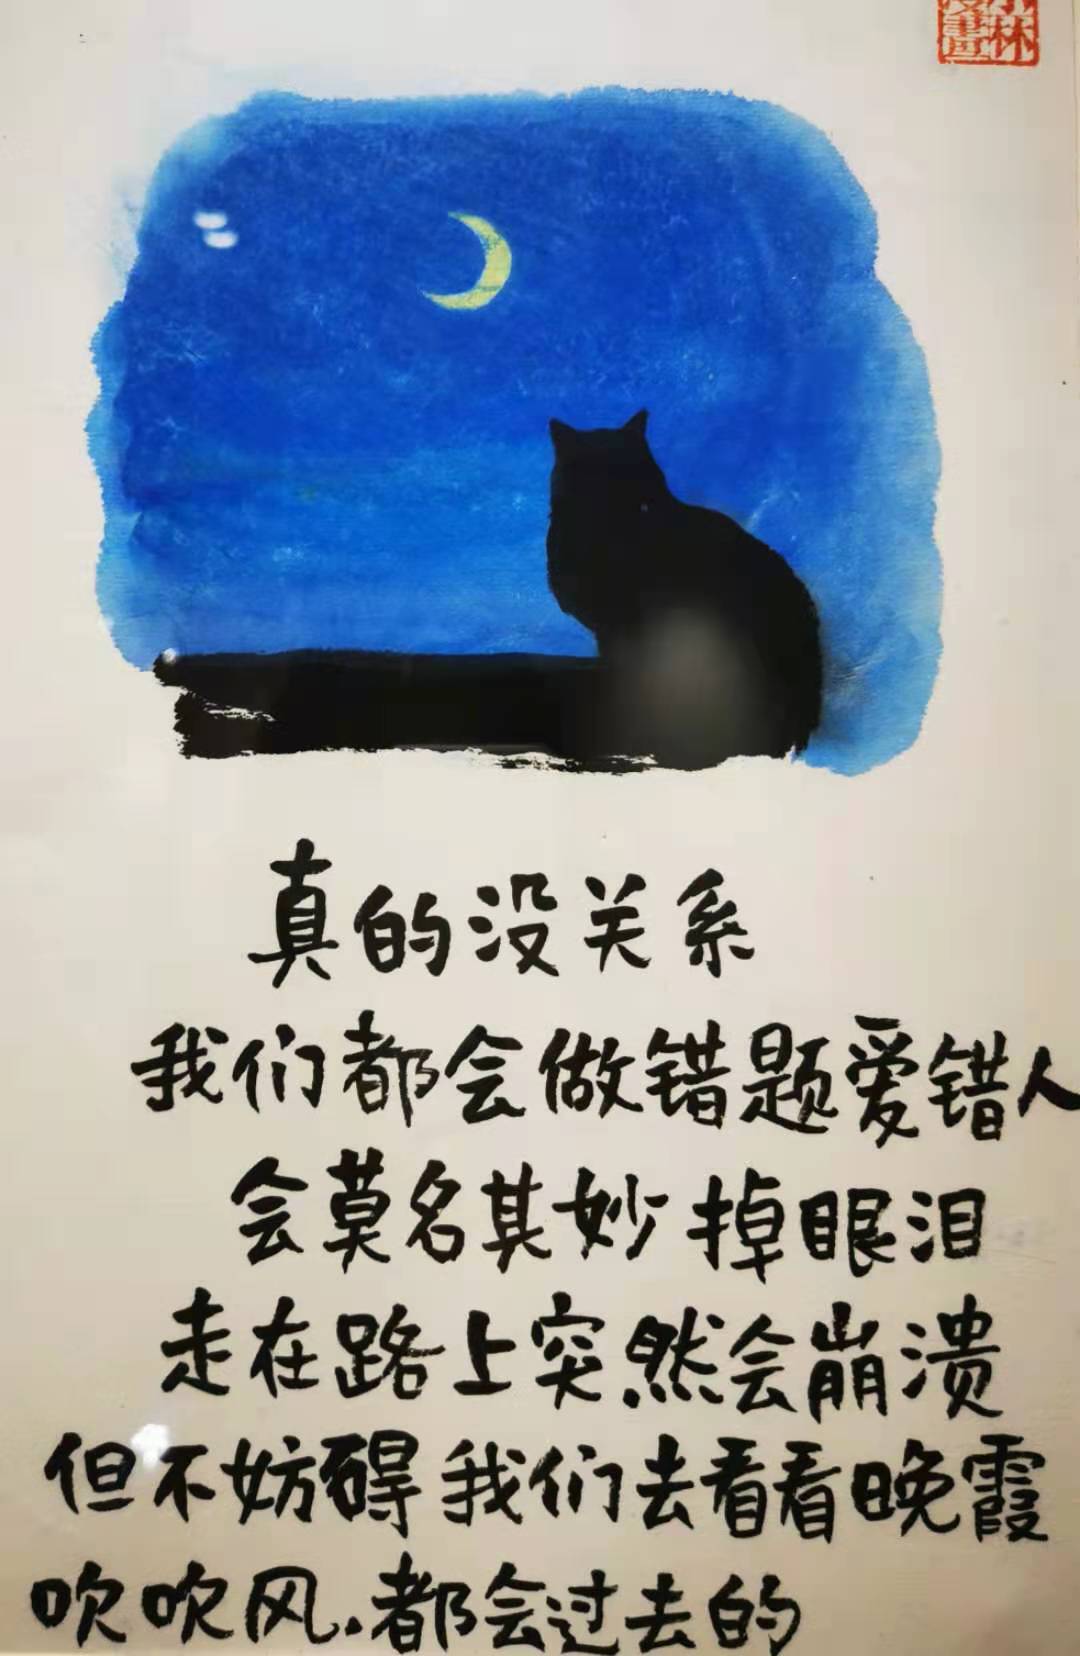 小林
漫画
真的没关系
我们都会做错题爱错人
会莫名其妙掉眼泪
走在路上突然会崩溃
但不妨碍我们去看看晚霞
吹吹风.都会过去的